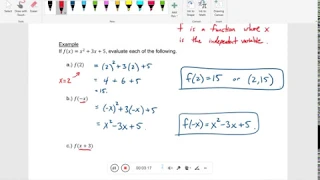 f is a function where x
is the independent variable.
Example
If f(x) = x² + 3x + 5, evaluate each of the following.
a.) f(2) = (2)² + 3(2) + 5
x=2
= 4 + 6 + 5
= 15.
f(2) = 15 or (2, 15)
b.) f(-x)
= (-x)² + 3(-x) + 5
= x² - 3x + 5.
f(-x) = x² - 3x + 5.
c.) f(x + 3)
00:03:17